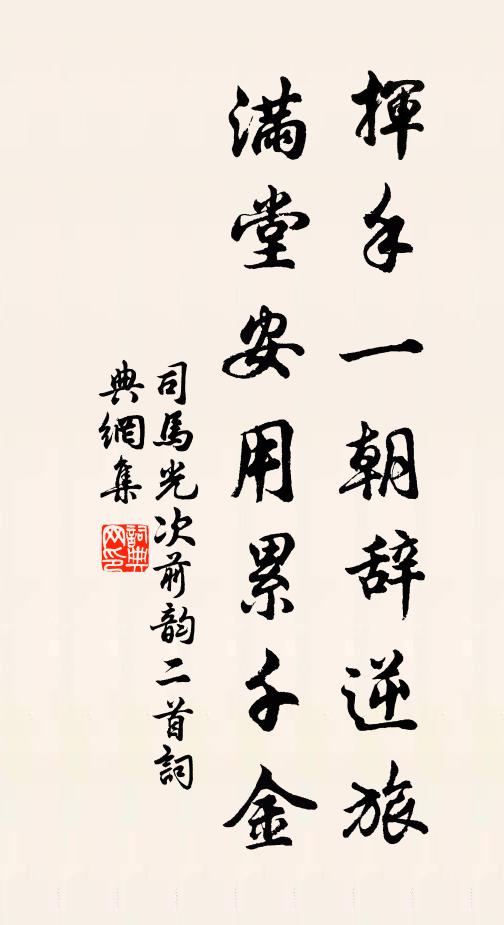 揮手一朝辞逆旅
滿堂安用累千金
司馬光次前韵二首詞
典網集
詞典
网印